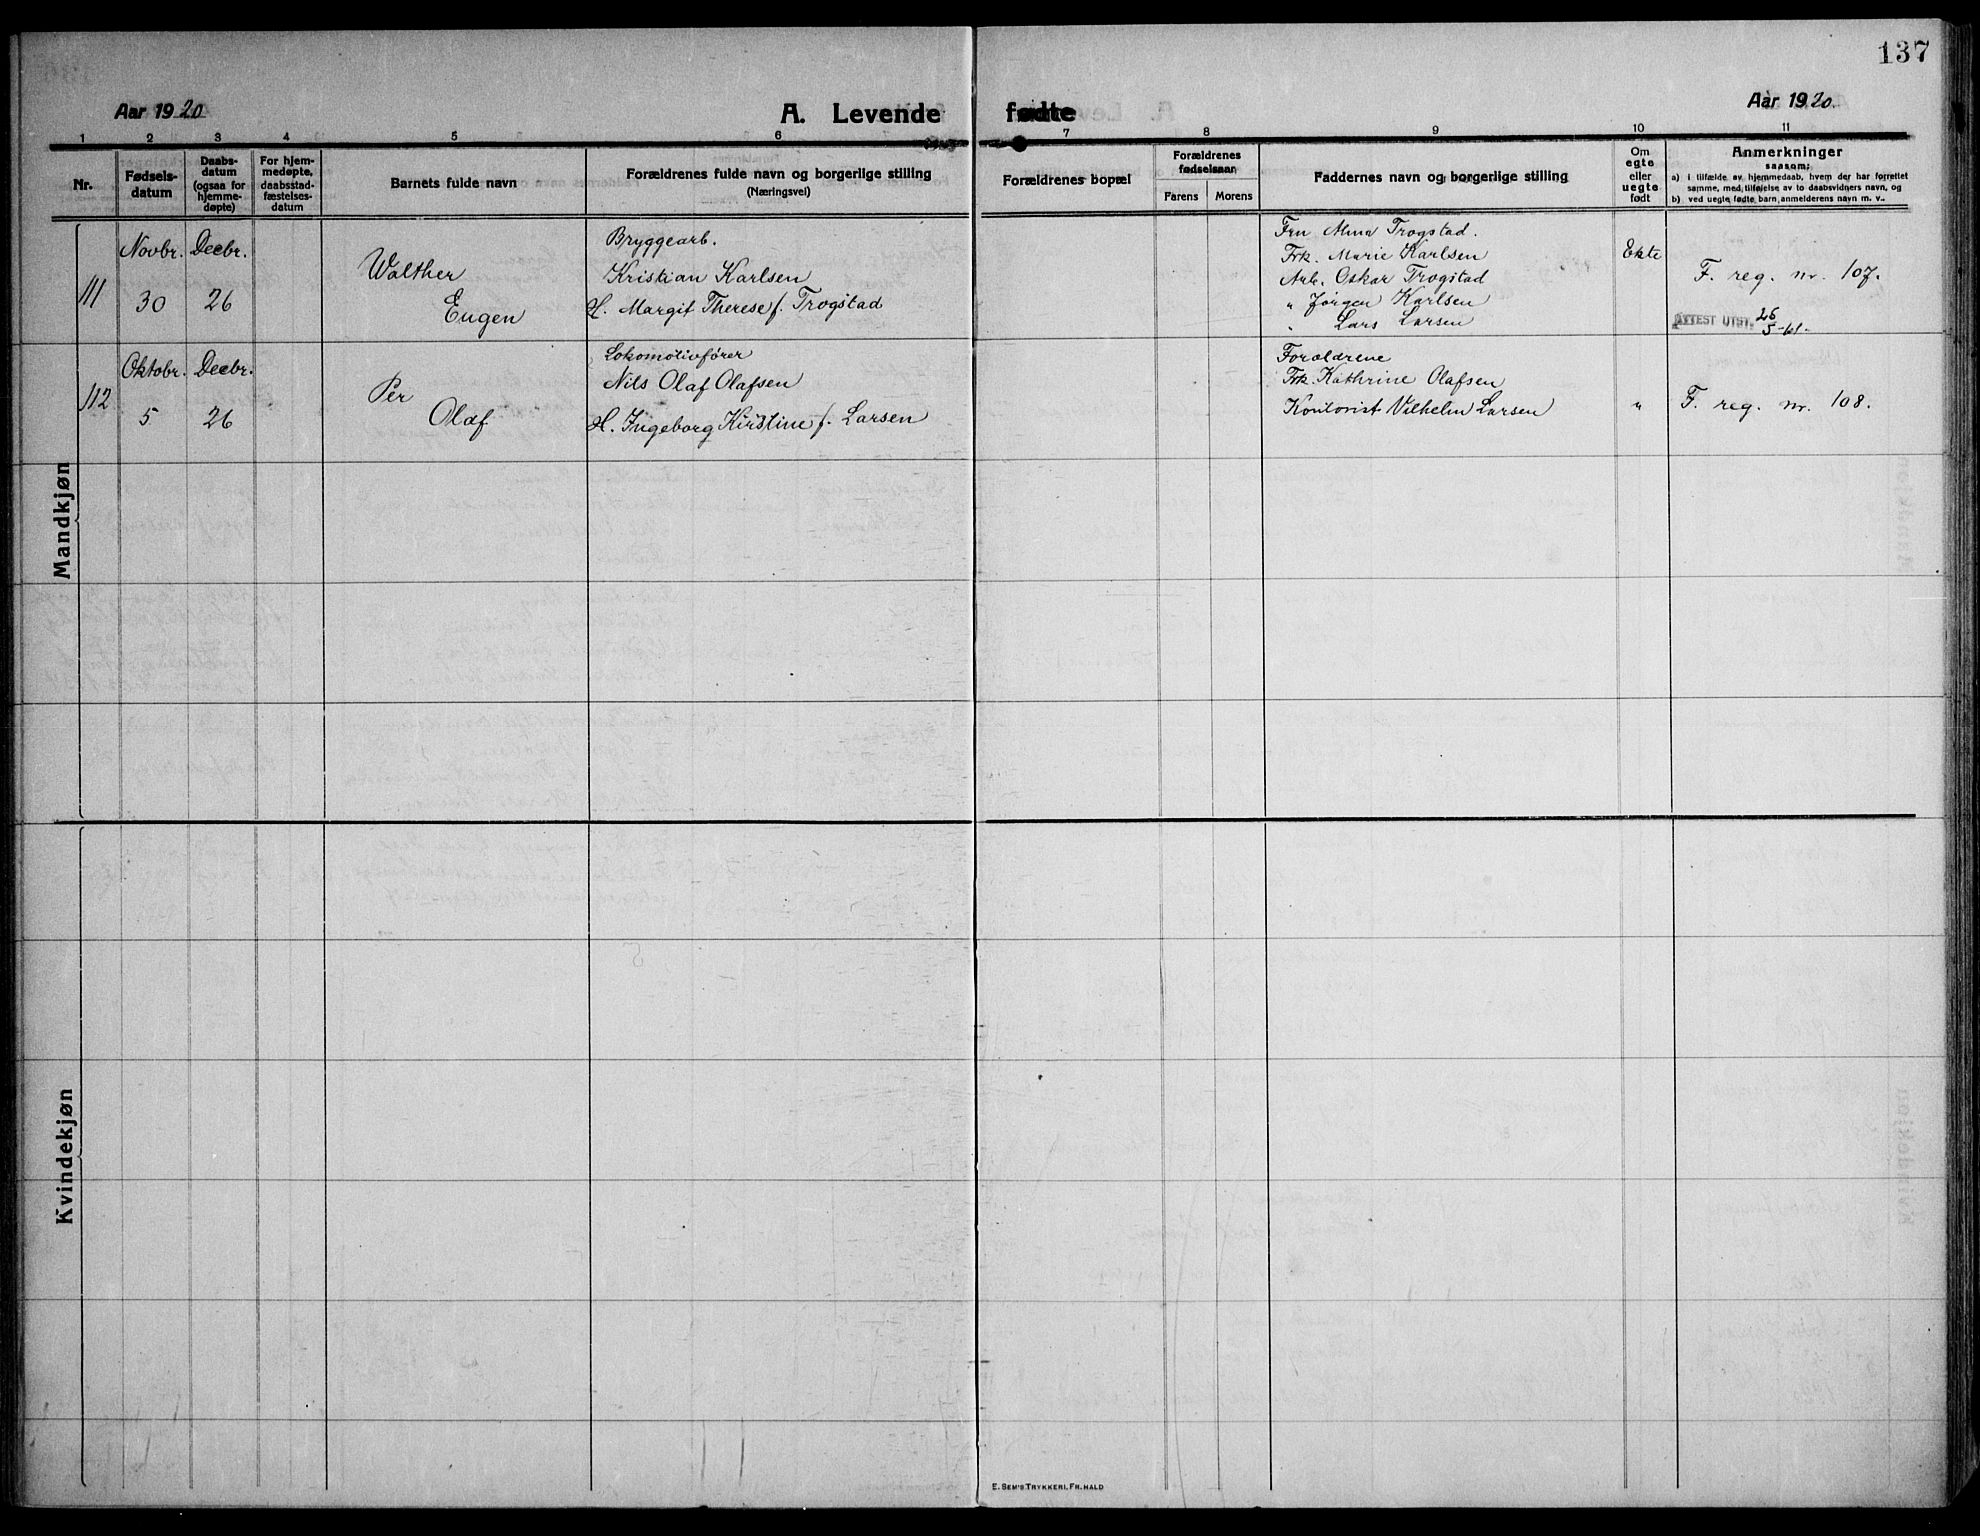 137
Aar 1920
A. Levende fødte
Aar 1920.
1 2 3 4 5 6 7 8 9 10 11
Nr.
Fødsels-
datum
Daabs-
datum
(ogsaa for
hjemme-
døpte)
For hjem-
medøpte,
daabsstad-
fæstelses-
datum
Barnets fulde navn
Forældrenes fulde navn og borgerlige stilling
(Næringsvei)
Forældrenes bopæl
Forældrenes
fødselsaar
Farens Morens
Faddernes navn og borgerlige stilling
Om
egte
eller
uegte
født
Anmerkninger
saasom:
a) i tilfælde av hjemmedaab, hvem der har forrettet
samme, med tilføielse av to daabsvidners navn, og
b) ved uegte fødte barn, anmelderens navn m. v..
Mandkjøn
111
Novbr.
30
Decbr.
26
Walther
Eugen
Bryggearb.
Kristian Karlsen
H. Margit Therese f. Trogstad
Fru Alma Trogstad.
Frk. Marie Karlsen
Arb. Oskar Trogstad
" Jørgen Karlsen
" Lars Larsen
Ekte
F. reg. nr. 107.
ATTEST UTST. 26
5-61.
112
Oktobr.
5
Decbr.
26
Per
Olaf
Lokomotivfører
Nils Olaf Olafsen
H. Ingeborg Kirstine f. Larsen
Forældrene
Frk. Kathrine Olafsen
Kontorist Vilhelm Larsen
"
F. reg. nr. 108.
Kvindekjøn
E. SEM'S TRYKKERI, FR.HALD